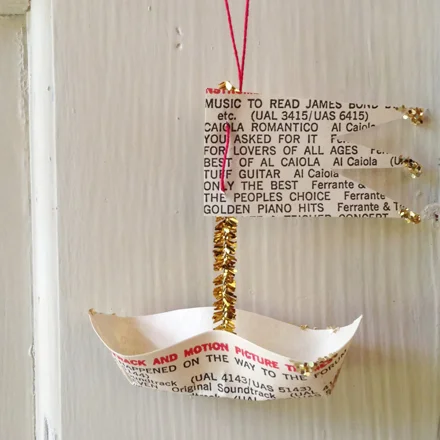 MUSIC TO READ JAMES BOND
etc. (UAL 3415/UAS 6415)
CAIOLA ROMANTICO Al Caiola
YOU ASKED FOR IT
FOR LOVERS OF ALL AGES
BEST OF AL CAIOLA Al Caiola
TUFF GUITAR Al Caiola
ONLY THE BEST Ferrante &
THE PEOPLES CHOICE Ferrante &
GOLDEN PIANO HITS Ferrante &
& TEICHER CONCERT
TRACK AND MOTION PICTURE
HAPPENED ON THE WAY TO THE
Soundtrack (UAL 4143/UAS 5143)
Original Soundtrack
(UAL